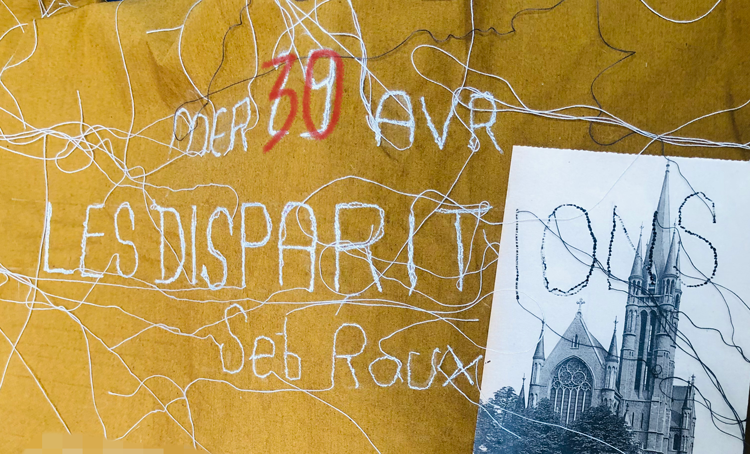 MER 30 AVR
LES DISPARITIONS
Seb Roux